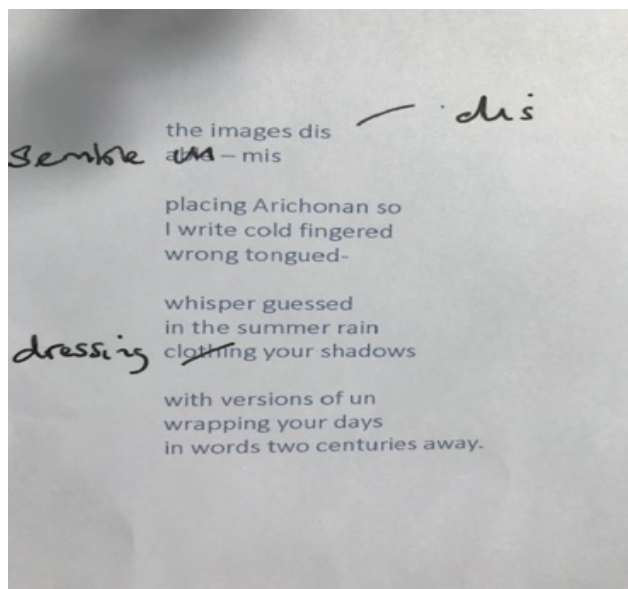 the images dis — dis
semble – mis
placing Arichonan so
I write cold fingered
wrong tongued-
whisper guessed
in the summer rain
dressing clothing your shadows
with versions of un
wrapping your days
in words two centuries away.